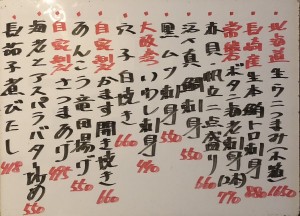 北海道 生ウニつまみ(木箱) 1650
長崎産 生本鮪トロ刺身 880
常磐 ボタン海老刺身 770
赤貝帆立二点盛り 660
活〆真鯛刺身 550
黒ムツ刺身 550
大阪産 いわし刺身 490
穴子白焼き 660
自家製 かます開き焼き 660
あんこう竜田揚げ 550
自家製 さつまあげ 495
海老とアスパラバター炒め 550
長茄子煮びたし 418